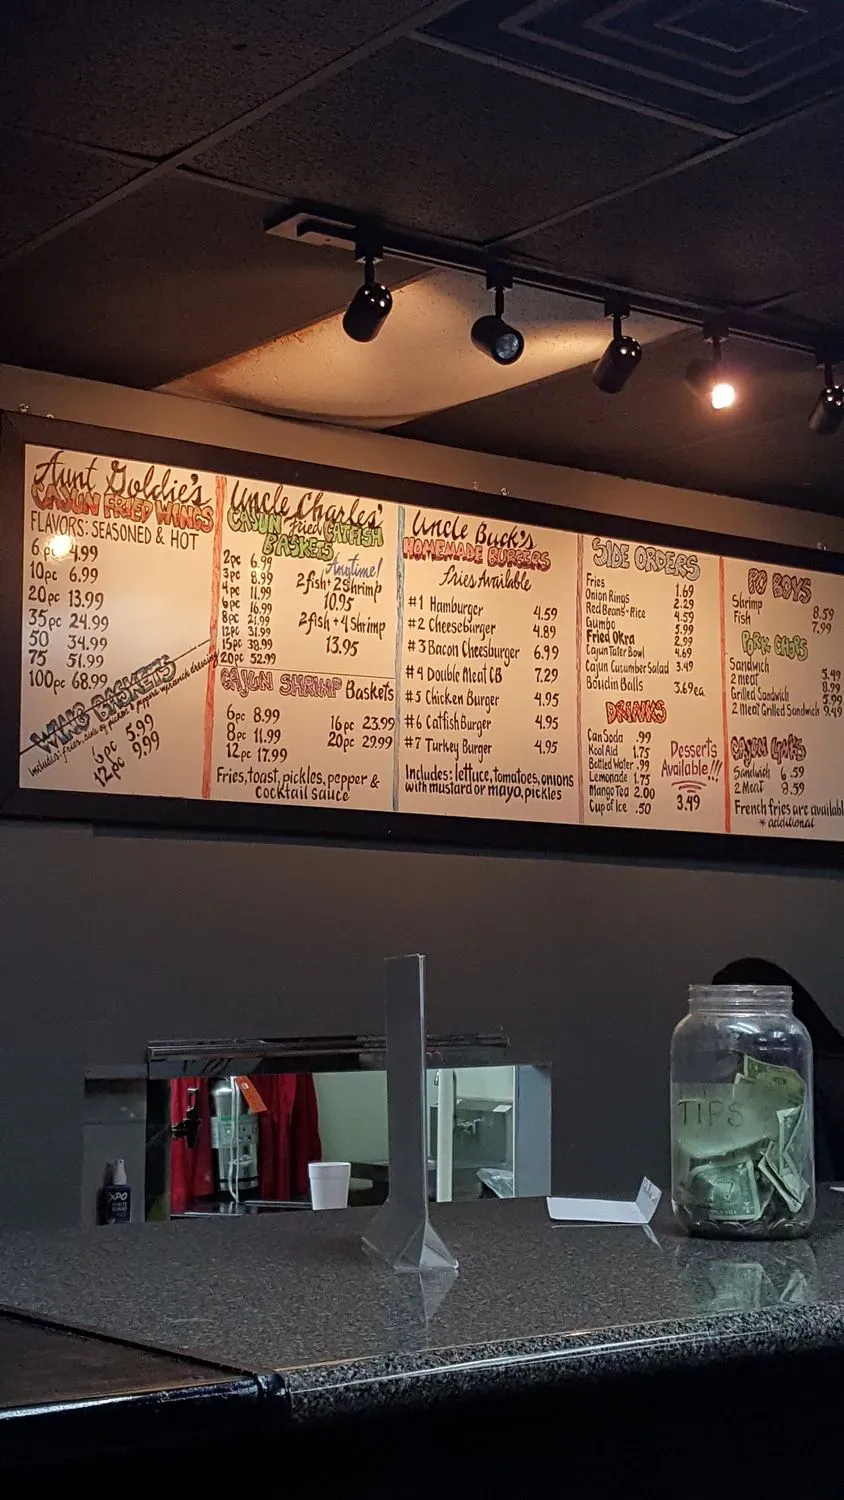 Aunt Goldie's
CAJUN FRIED WINGS
FLAVORS: SEASONED & HOT
6 pc 4.99
10pc 6.99
20pc 13.99
35pc 24.99
50 34.99
75 51.99
100pc 68.99
WING BASKETS
Includes: fries, side of pickles & peppers w/ranch dressing
6pc 5.99
12pc 9.99
Uncle Charles'
CAJUN Fried CATFISH
BASKETS
Anytime!
2pc 6.99
3pc 8.99
4pc 11.99
6pc 16.99
8pc 21.99
12pc 31.99
15pc 38.99
20pc 52.99
2fish + 2Shrimp
10.95
2fish + 4Shrimp
13.95
CAJUN SHRIMP Baskets
6pc 8.99
8pc 11.99
12pc 17.99
16pc 23.99
20pc 29.99
Fries, toast, pickles, pepper &
cocktail sauce
Uncle Buck's
HOMEMADE BURGERS
Fries Available
#1 Hamburger 4.59
#2 Cheeseburger 4.89
#3 Bacon Cheesburger 6.99
#4 Double Meat CB 7.29
#5 Chicken Burger 4.95
#6 Catfish Burger 4.95
#7 Turkey Burger 4.95
Includes: lettuce, tomatoes, onions
with mustard or mayo, pickles
SIDE ORDERS
Fries 1.69
Onion Rings 2.29
Red Beans + Rice 4.59
Gumbo 3.99
Fried Okra 2.99
Cajun Tater Bowl 4.69
Cajun Cucumber Salad 3.49
Boudin Balls 3.69ea.
DRINKS
Can Soda .99
Kool Aid 1.75
Bottled Water .99
Lemonade 1.75
Mango Tea 2.00
Cup of Ice .50
Desserts
Available!!!
3.49
PO BOYS
Shrimp 8.59
Fish 7.99
PORK CHOPS
Sandwich 5.49
2 meat 8.99
Grilled Sandwich 5.99
2 Meat Grilled Sandwich 9.49
CAJUN LINKS
Sandwich 6.59
2 Meat 8.59
French fries are availabl
* additional
TIPS
EXPO